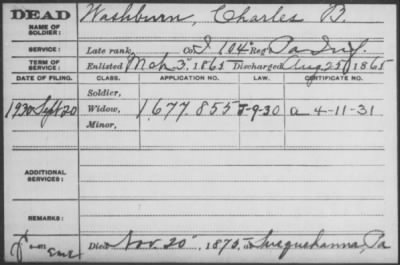 DEAD
NAME OF SOLDIER:
Washburn, Charles B.
SERVICE:
Late rank, Co. I, 104" Reg. Pa Inf.
TERM OF SERVICE:
Enlisted Mch 3, 1865 Discharged Aug 25, 1865
DATE OF FILING. CLASS. APPLICATION NO. LAW. CERTIFICATE NO.
Soldier,
1930 Sept 20 Widow, 1,677,855 5-9-30 a 4-11-31
Minor,
ADDITIONAL SERVICES:
REMARKS:
Died Nov. 20", 1875, at Susquehanna, Pa